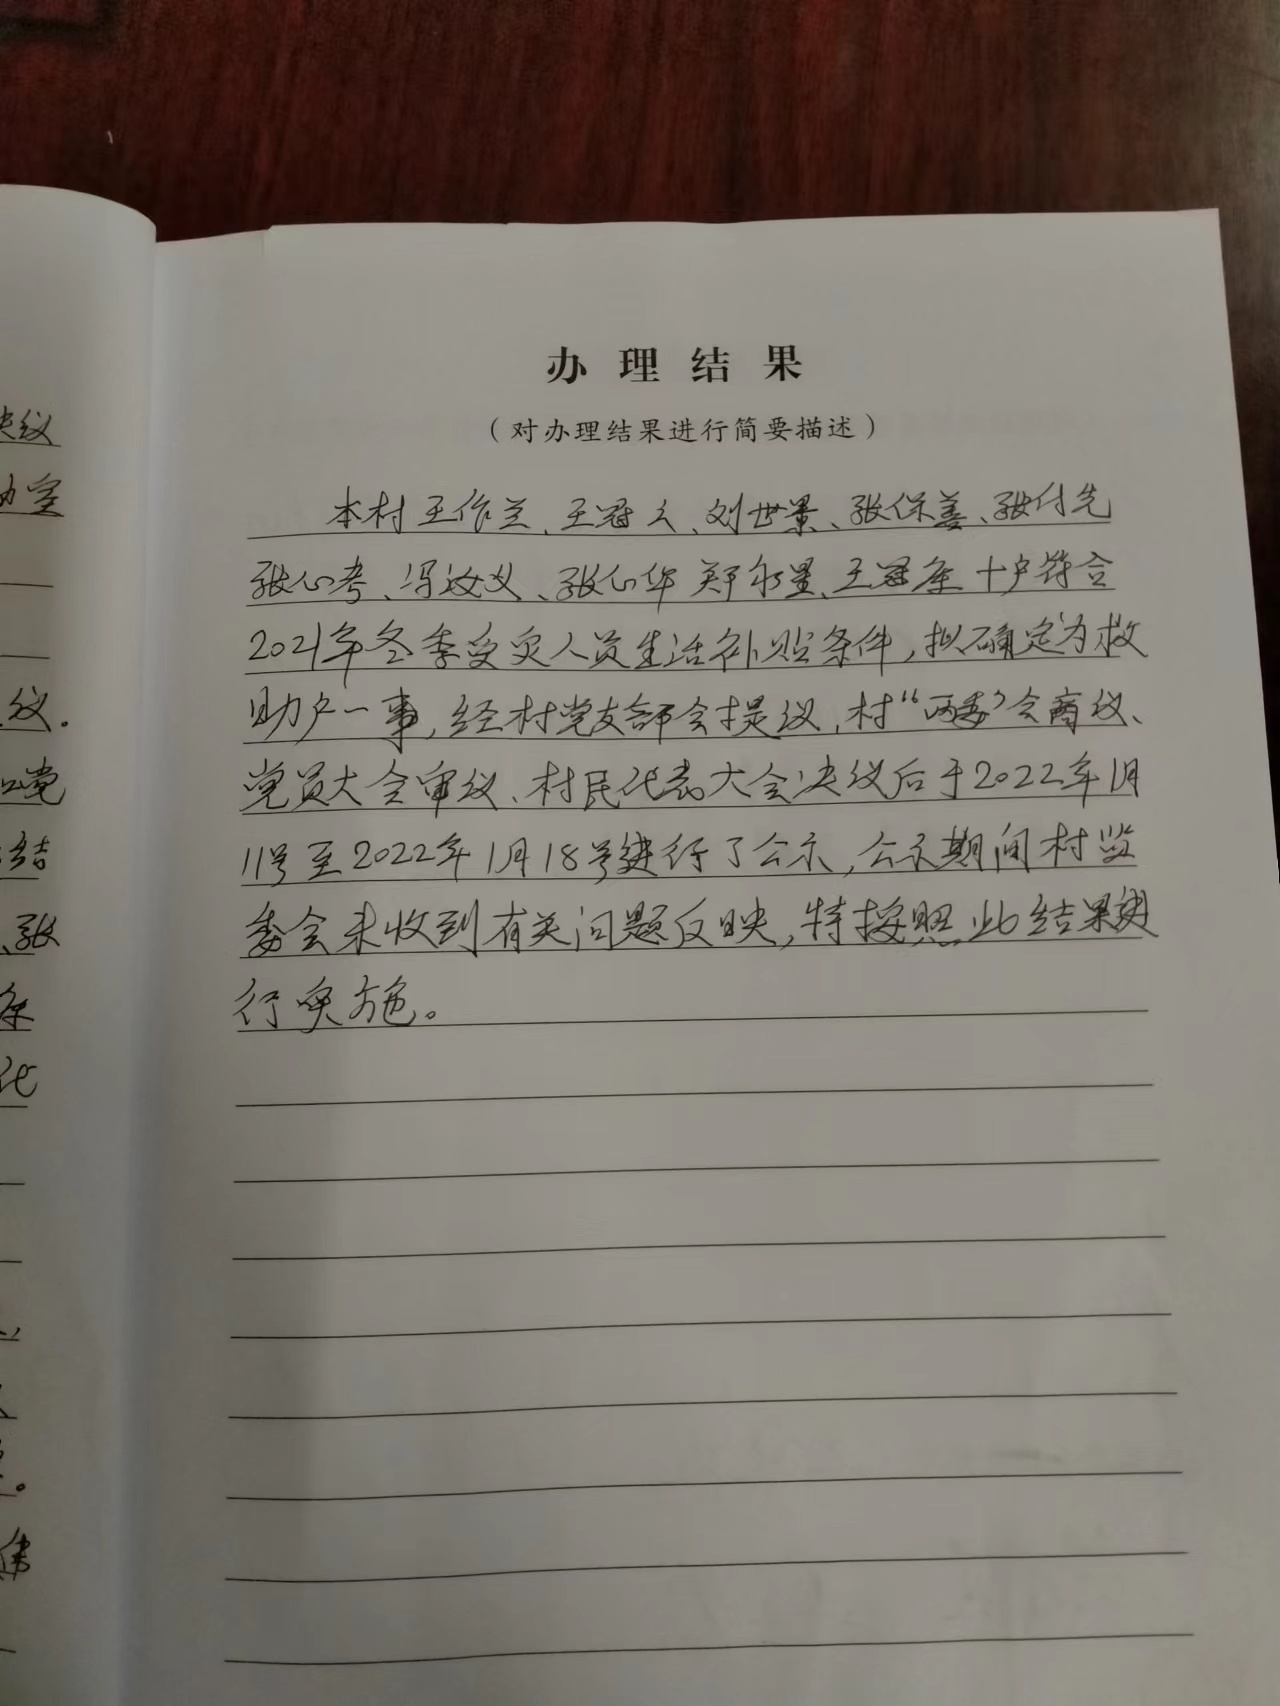 办理结果
（对办理结果进行简要描述）
本村王作兰、王冠义、刘世景、张保善、张付先
张心考、冯汝义、张心华 郑永星、王冠条 十户符合
2021年冬季受灾人员生活补贴条件，拟确定为救
助户一事，经村党支部会提议，村“两委”会商议、
党员大会审议、村民代表大会决议后于2022年1月
11号至2022年1月18号进行了公示，公示期间村监
委会未收到有关问题反映，特按照此结果进
行实施。
决议
议.
党
结
、张
条
代